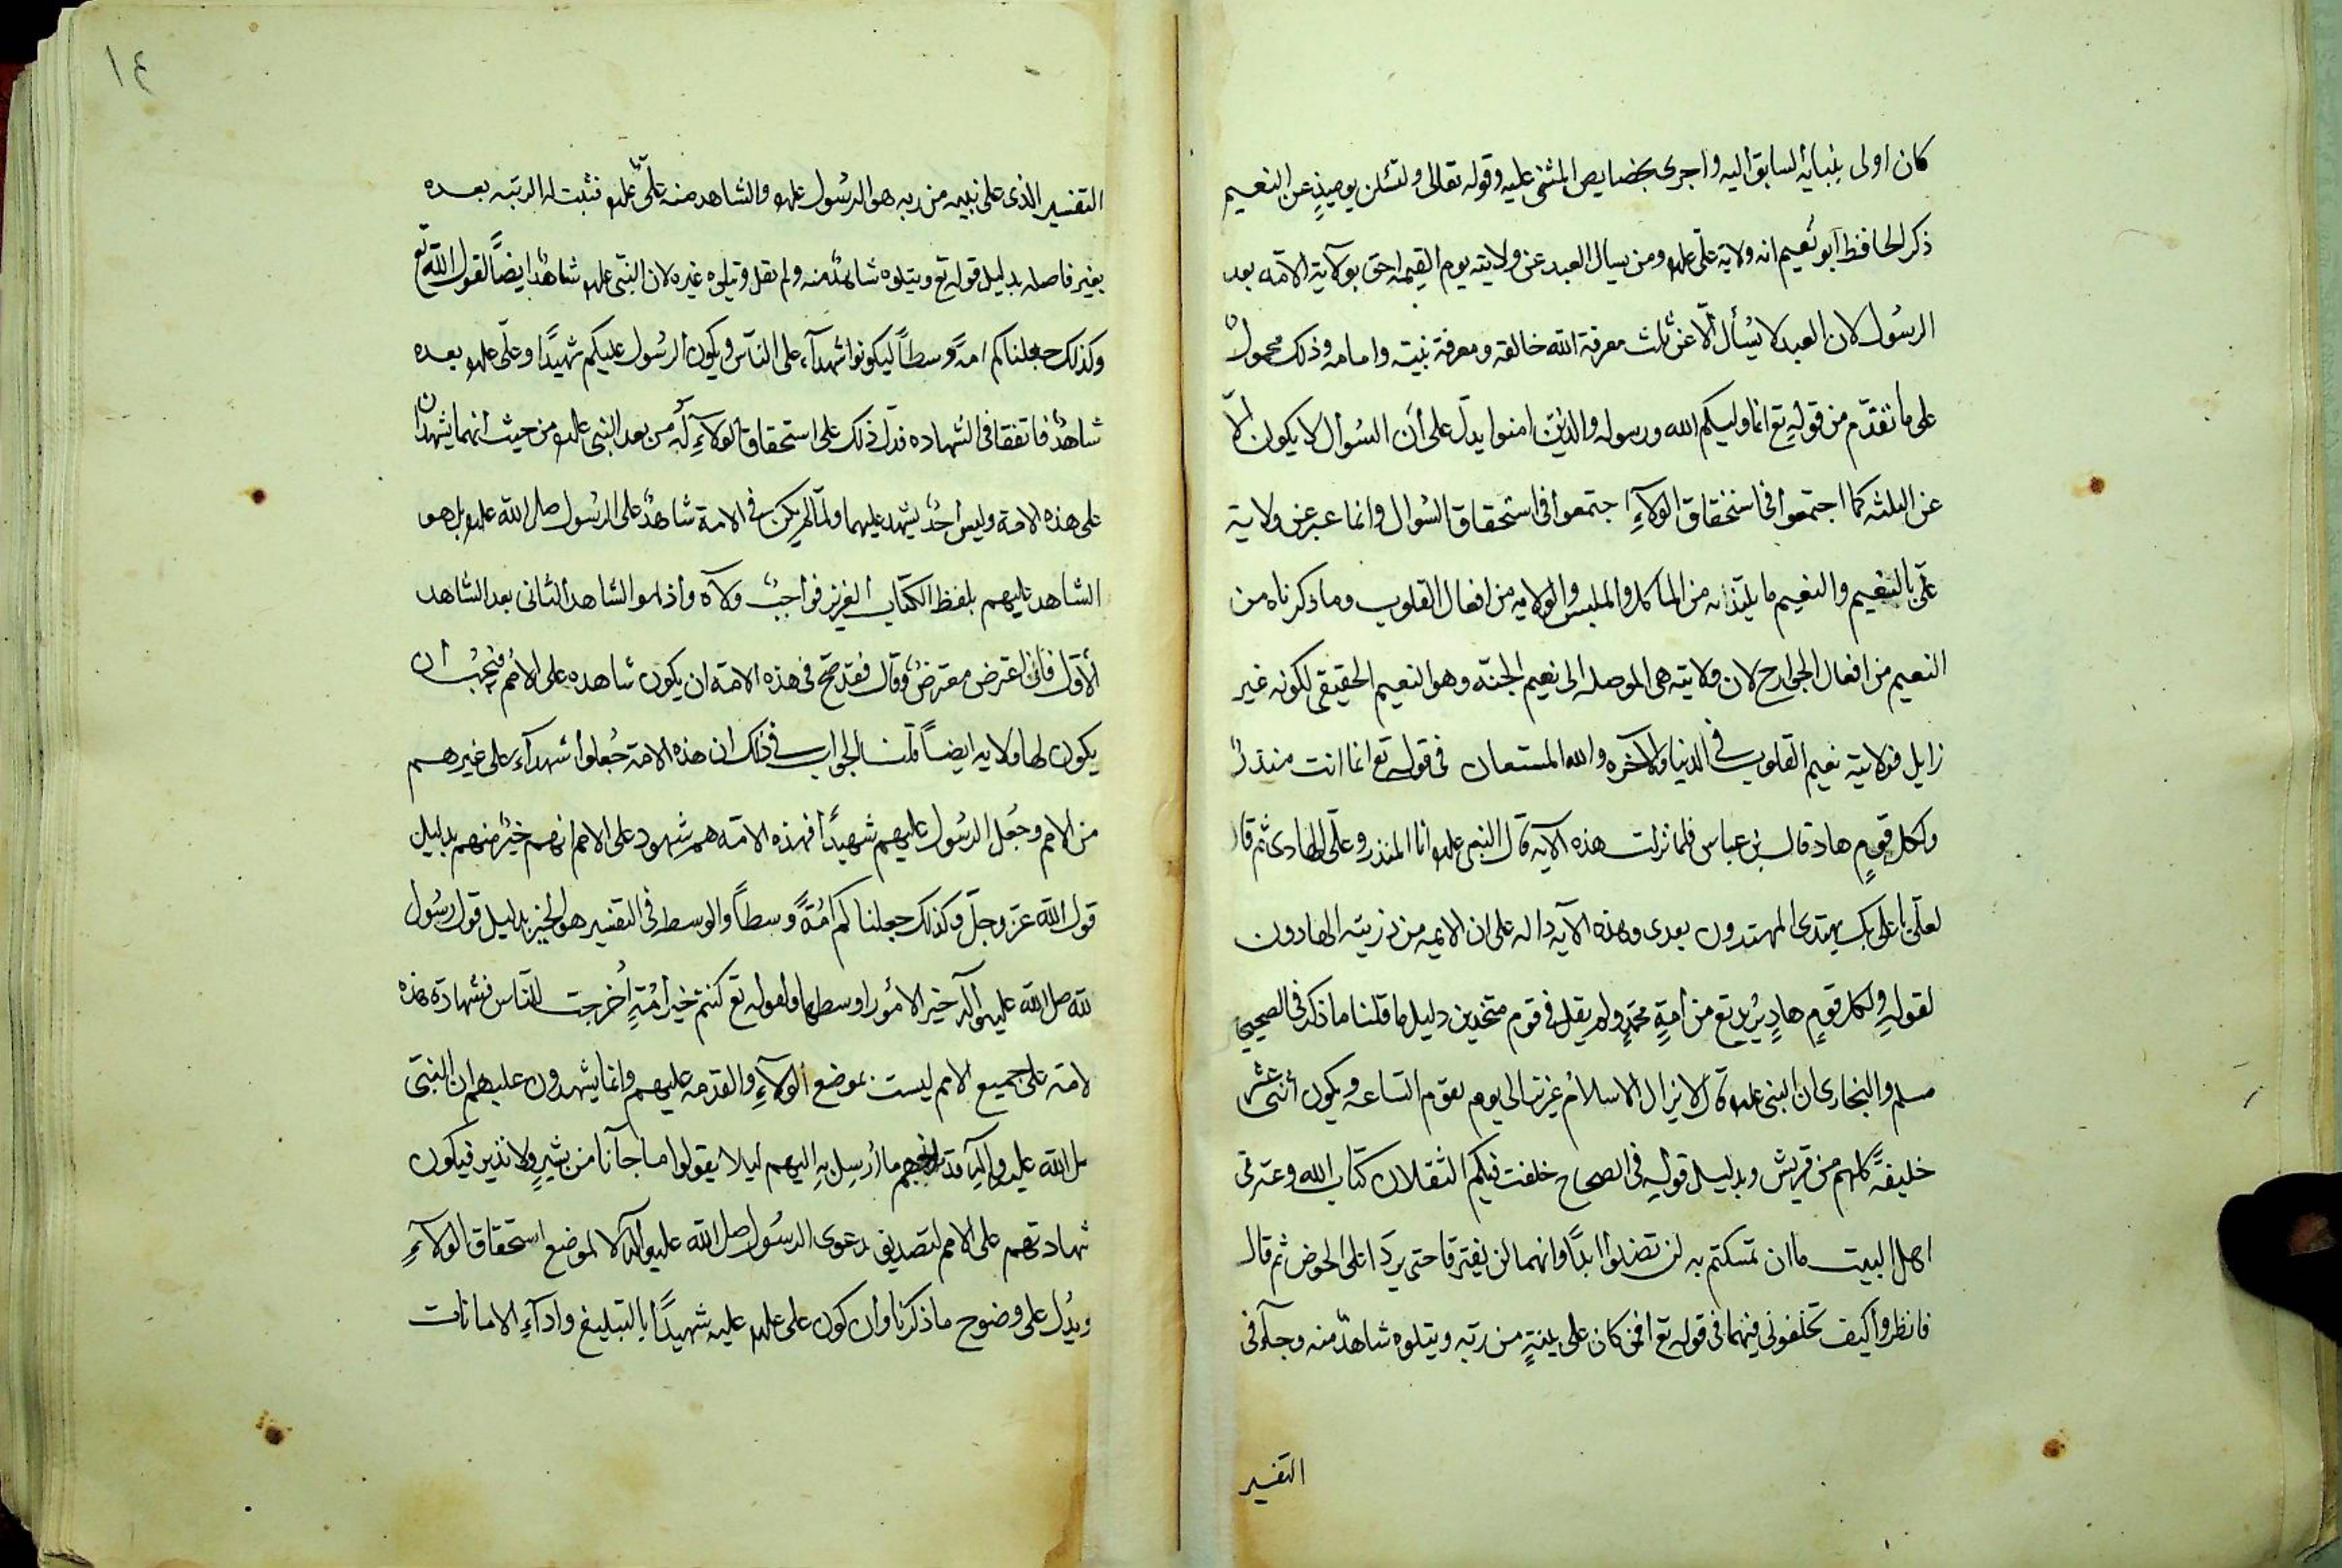 كان اولى بنيابة السابق اليه واجرى بخصايص المثنى عليه وقوله تعالى ولتسئلن يوميذٍ عن النعيم
ذكر الحافظ ابو نعيم انه ولاية علي علم ومن يسال العبد عن ولايته يوم القيمه احق بولاية الامّه بعد
الرسُول لان العبد لا يسُأل الّا عن ثلث معرفة الله خالقه ومعرفة نبيه وامامه وذلك محمول
على ما تقدّم من قولهِ تع انما وليكم الله ورسوله والذين امنوا يدلّ على أن السُوال لا يكون الّا
عن الثلثه كما اجتمعوا فى استحقاق الولآءِ اجتمعوا فى استحقاق السُوال وانما عبر عن ولاية
علّى بالنعيم والنعيم ما يلتذ به من الماكل والملبس والولايه من افعال القلوب وما ذكرناه من
النعيم من افعال الجوارح لان ولايته هى الموصله الى نعيم الجنّه وهو النعيم الحقيقى لكونه غير
زايل فولايته نعيم القلوب فى الدنيا والآخره والله المستعان فى قوله تع انما انت منذرٌ
ولكل قومٍ هاد قال بن عباس فلما نزلت هذه الآيه قال النبى علم انا المنذر وعلّى الهادى ثم قال
لعلّى يا علّى بك يهتدى المهتدون بعدى وهذه الآيه داله على ان الايمه من ذريته الهادون
لقولهِ ولكل قومٍ هادٍ يُريد تع من امّةِ محمّدٍ ولم يقل فى قوم متحدين دليل ما قلنا ما ذكر فى الصحيح
مسلم والبخارى ان النبى علم قال لا يزال الاسلام عزيزا الى يوم تقوم الساعه ويكون أثنى عشر
خليفةً كلهم من قريش وبدليل قولهِ فى الصحاح خلفت فيكم الثقلان كتاب الله وعترتى
اهل البيت ما ان تمسكتم به لن تضلوا ابدًا وانهما لن يفترقا حتى يردَا على الحوض ثم قال
فانظروا كيف تخلفونى فيهما فى قوله تع افمن كان على بينةٍ من ربه ويتلوه شاهدٌ منه وجآء فى
التفسير
١٤
التفسير الذى على بينه من ربه هو الرسُول علم والشاهد منه علّى علم فثبت له الرتبه بعده
بغير فاصله بدليل قوله تع ويتلوه شاهدٌ منه ولم يقل ويتلوه غيره لان النبّى علم شاهدٌ ايضًا لقول الله تع
وكذلك جعلناكم امةً وسطاً ليكونوا شهدآء على الناس ويكون الرسُول عليكم شهيدًا وعلّى علم بعده
شاهدٌ فاتفقا فى الشهاده فدلّ ذلك على استحقاق الولآءِ له من بعد النبى علم من حيث انهما يشهدان
على هذه الامة وليس أحدٌ يشهد عليهما ولمّا لم يكن فى الامة شاهدٌ على الرسُول صلى الله علم بل هو
الشاهد عليهم بلفظ الكتاب العزيز فواجبٌ ولآه واذا هو الشاهد الثانى بعد الشاهد
الأوّل فان اعترض معترضٌ وقال فقد صّح فى هذه الامّة ان يكون شاهده على الامُم فيجبُ ان
يكون لها ولايه ايضاً قلنا الجواب فى ذلك ان هذه الامة جُعلوا شهدآء على غيرهم
من الامم وجُعل الرسُول عليهم شهيدًا فهذه الامّه هم شهود على الامم انهم خيرٌ منهم بدليل
قول الله عزّ وجلّ وكذلك جعلناكم امُةً وسطاً والوسط فى التفسير هو الخير بدليل قول رسُول
لله صلى الله عليهوآله خير الامُور اوسطها ولقوله تع كنتم خير امُةٍ أخرجت للناس فشهادة هذه
لامة على جميع الامم ليست بموضع الولآءِ والقدمه عليهم وانما يشهدون عليهم ان النبّى
صل الله عليه وآله قد بلغهم ما أُرسِل بهِ اليهم ليلا يقولوا ما جآنا من بشيرٍ ولا نذير فيكون
شهادتهم على الامم لتصديق دعوى الرسُول صل الله عليه وآله لا لموضع استحقاق الولآءِ
ويدُل على وضوح ما ذكرنا وان كون على علم عليه شهيدًا بالتبليغ وادآءِ الامانات